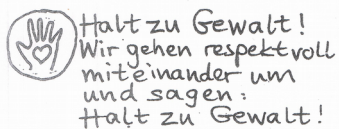 Halt zu Gewalt!
Wir gehen respektvoll
miteinander um
und sagen:
Halt zu Gewalt!